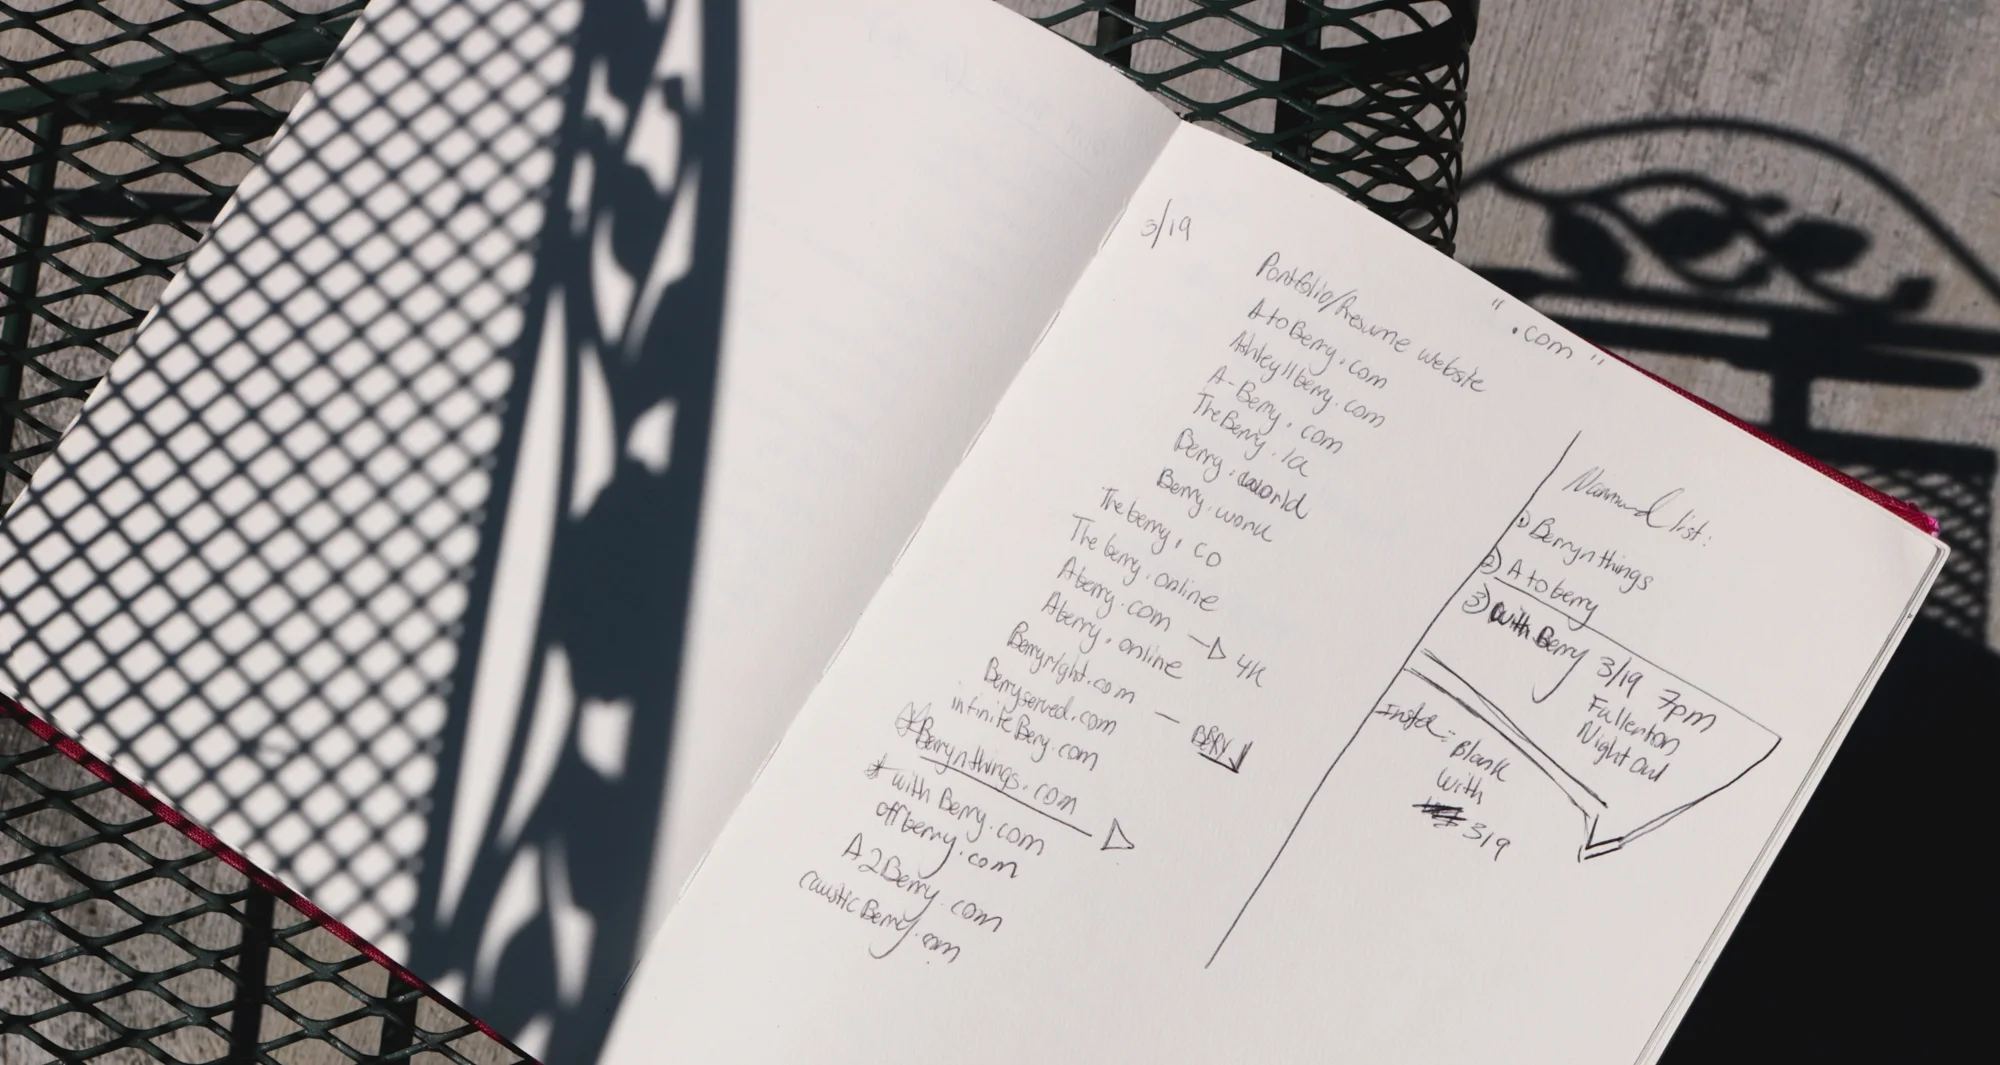 3/19
Portfolio/Resume website
" .com "
AtoBerry.com
Ashley11berry.com
A-Berry.com
TheBerry.la
Berry.world
Berry.work
Theberry.co
Theberry.online
Aberry.com → 4K
Aberry.online
Berryright.com
Berryserved.com — BERRY
infiniteBerry.com
* Berrynthings.com
* withBerry.com
offberry.com
A2Berry.com
causticBerry.com
list:
1) Berrynthings
2) A to berry
3) with Berry
3/19 7pm
Fullerton
Night Out
Insta: Blank
with
319